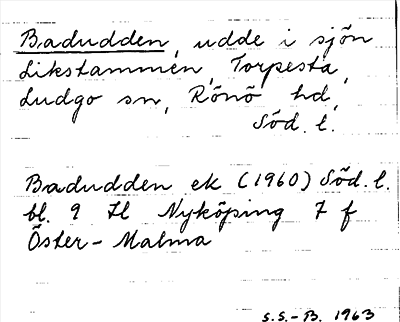 Badudden, udde i sjön
Likstammen, Torpesta,
Ludgo sn, Rönö hd,
Söd. l.
Badudden ek (1960) Söd. l.
bl. 9 Hl Nyköping 7 f
Öster-Malma
S.S.-B. 1963